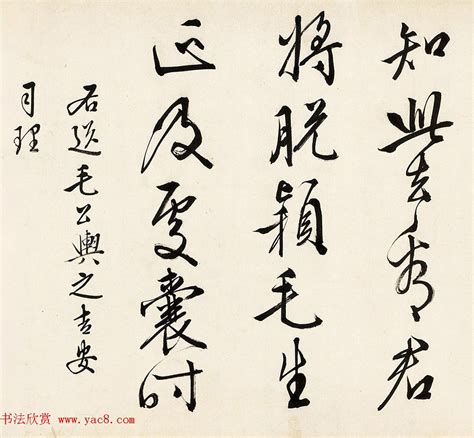 知此去看君
將脱穎毛生
正及處囊时
右送毛公輿之吉安
司理
书法欣赏 www.yac8.com